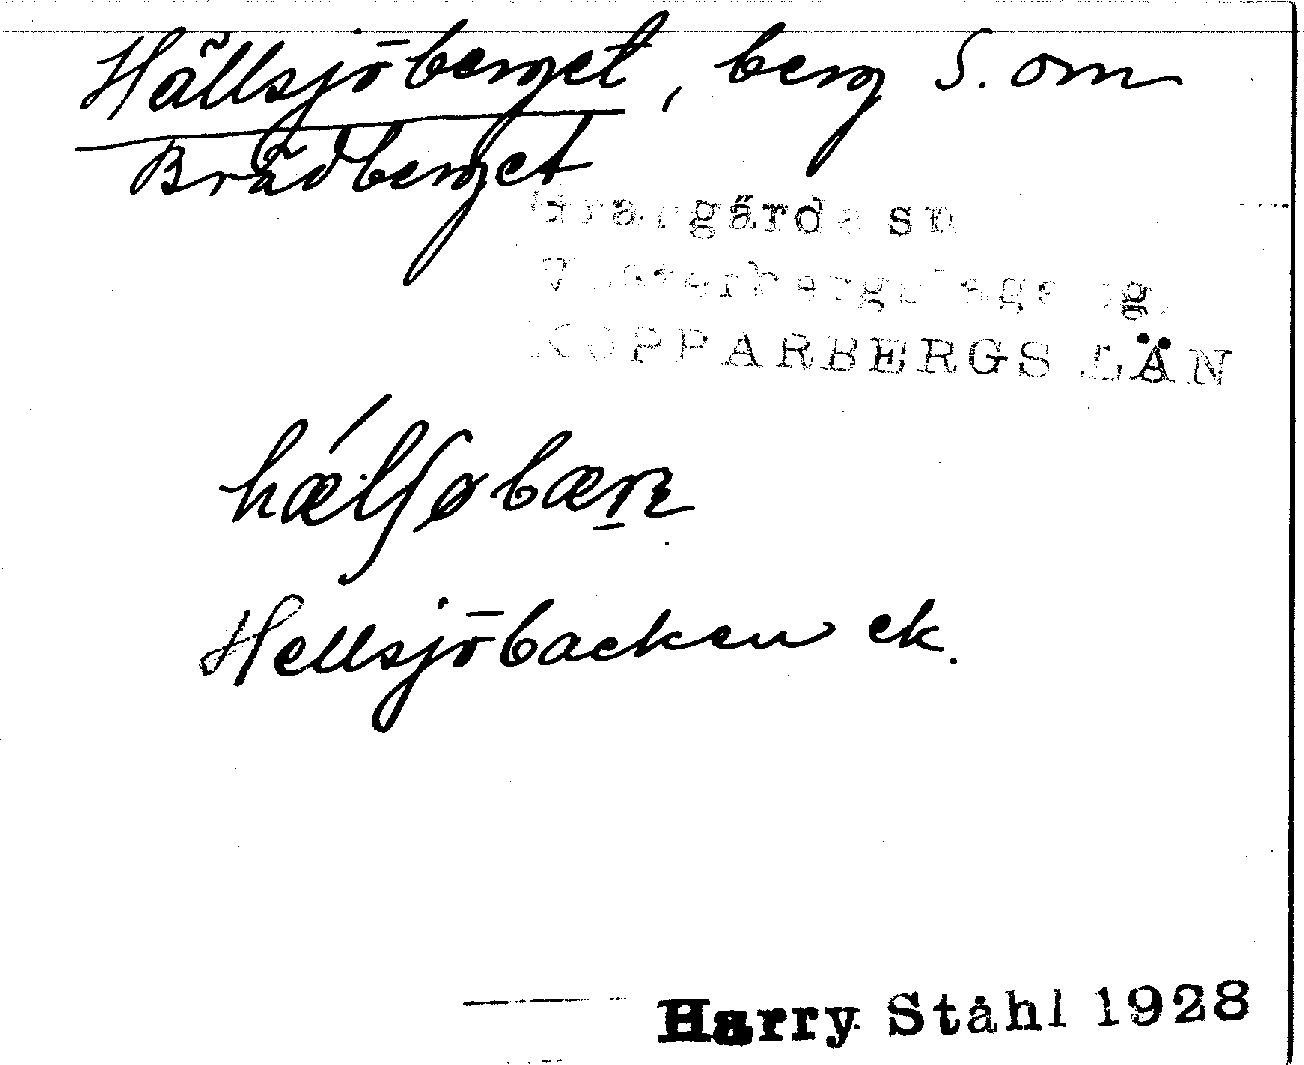 Hällsjöberget, berg S. om
Brådberget
Grangärde sn
Västerbergslags tg.
KOPPARBERGS LÄN
hælʃøbærɛ
Hellsjöbacken ek.
Harry Ståhl 1928